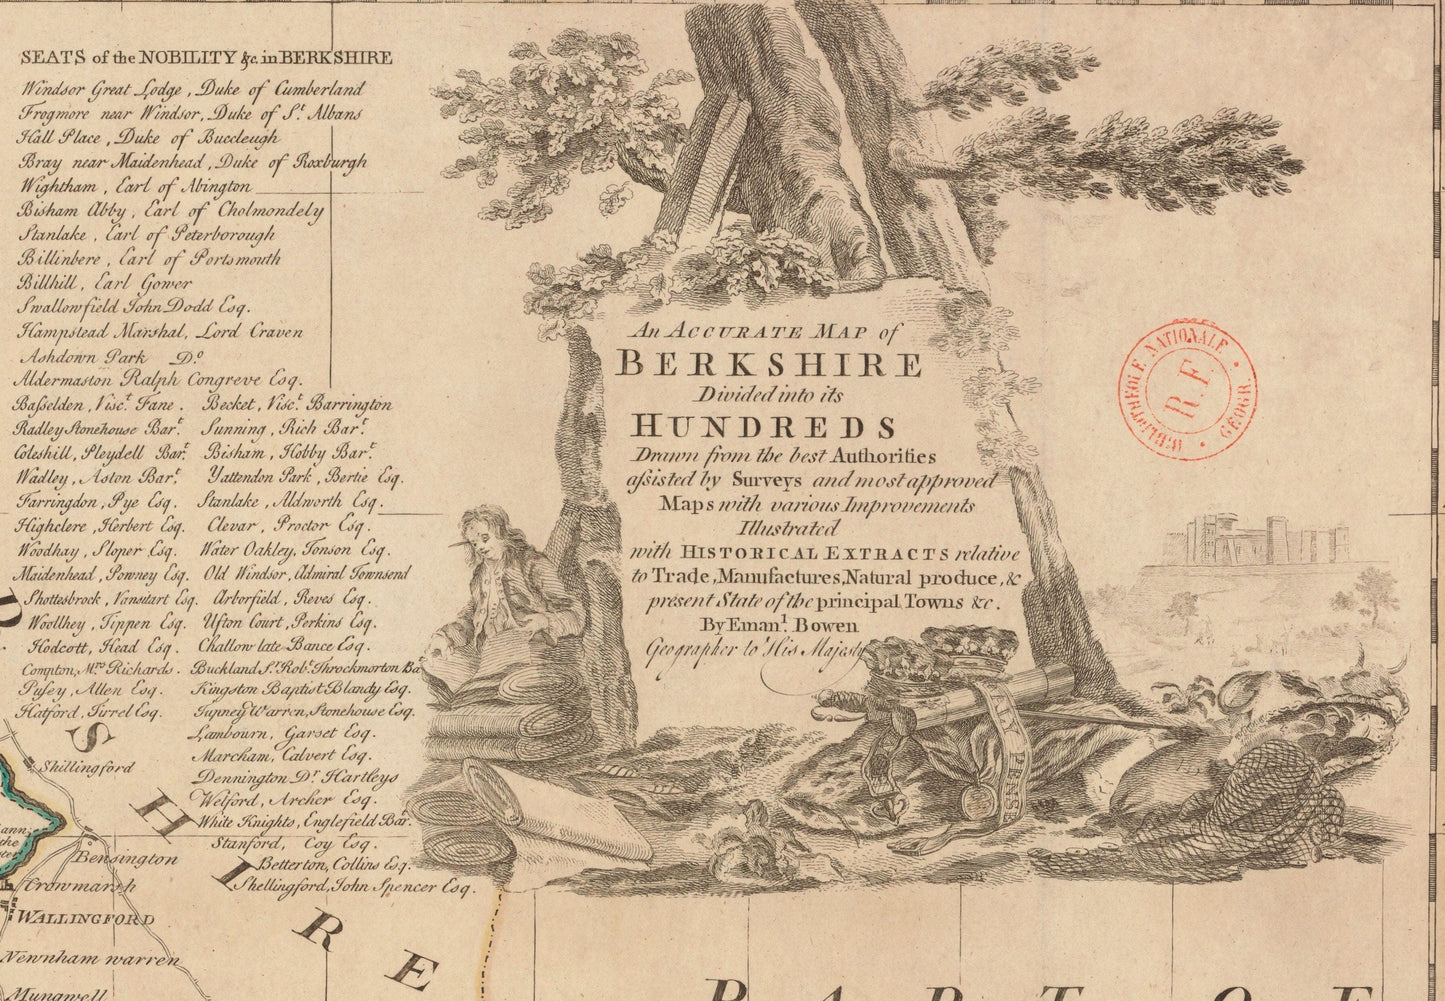 SEATS of the NOBILITY &c. in BERKSHIRE
Windsor Great Lodge, Duke of Cumberland
Frogmore near Windsor, Duke of St. Albans
Hall Place, Duke of Buccleugh
Bray near Maidenhead, Duke of Roxburgh
Wightham, Earl of Abington
Bisham Abby, Earl of Cholmondely
Stanlake, Earl of Peterborough
Billinbere, Earl of Portsmouth
Billhill, Earl Gower
Swallowfield John Dodd Esq.
Hampstead Marshal, Lord Craven
Ashdown Park Do.
Aldermaston Ralph Congreve Esq.
Basselden, Visct. Fane. Becket, Visct. Barrington
Radley Stonehouse Bart. Sunning, Rich Bart.
Coleshill, Pleydell Bart. Bisham, Hobby Bart.
Wadley, Aston Bart. Yattendon Park, Bertie Esq.
Farringdon, Pye Esq. Stanlake, Aldworth Esq.
Highclere, Herbert Esq. Clevar, Proctor Esq.
Woodhay, Sloper Esq. Water Oakley, Tonson Esq.
Maidenhead, Powney Esq. Old Windsor, Admiral Townsend
Shottesbrock, Vansitart Esq. Arborfield, Reves Esq.
Woollhey, Tippen Esq. Ufton Court, Perkins Esq.
Hodcott, Head Esq. Challow late Bance Esq.
Compton, Mrs. Richards. Buckland Sr. Robt. Throckmorton Ba
Pusey, Allen Esq. Kingston Baptist Blandy Esq.
Hatford, Tirrel Esq. Tupney Warren, Stonehouse Esq.
Lambourn, Garset Esq.
Marcham, Calvert Esq.
Dennington Dr. Hartleys
Welford, Archer Esq.
White Knights, Englefield Bar.
Stanford, Coy Esq.
Betterton, Collins Esq.
Shellingford, John Spencer Esq.
An ACCURATE MAP of
BERKSHIRE
Divided into its
HUNDREDS
Drawn from the best Authorities
assisted by Surveys and most approved
Maps with various Improvements
Illustrated
with HISTORICAL EXTRACTS relative
to Trade, Manufactures, Natural produce, &c
present State of the principal Towns &c.
By Emanl. Bowen
Geographer to His Majesty
Y PENSE
BIBLIOTHEQUE NATIONALE
R.F.
GEOGR.
SHIRE
Shillingford
Bensington
Crowmarsh
WALLINGFORD
Newnham warren
Mungwell
PART OF